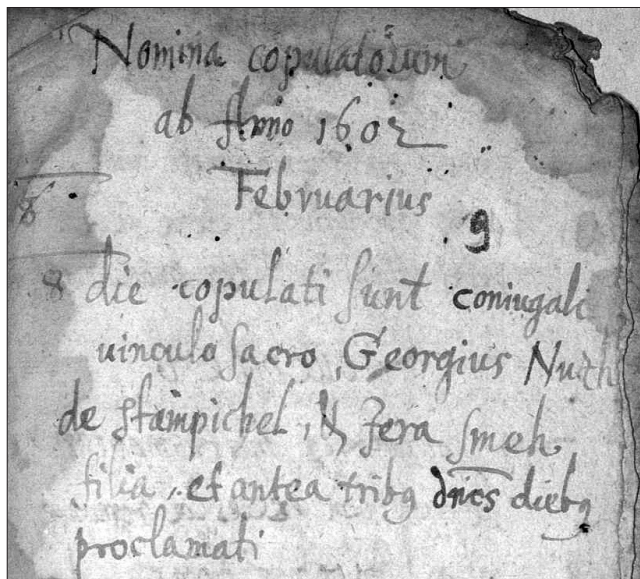 Nomina copulatorum
ab Anno 1602
Februarius
8
9
8 die copulati sunt coniugali
uinculo sacro, Georgius
de stampichel,
filia, et antea tribq dnĩcs diebq
proclamati